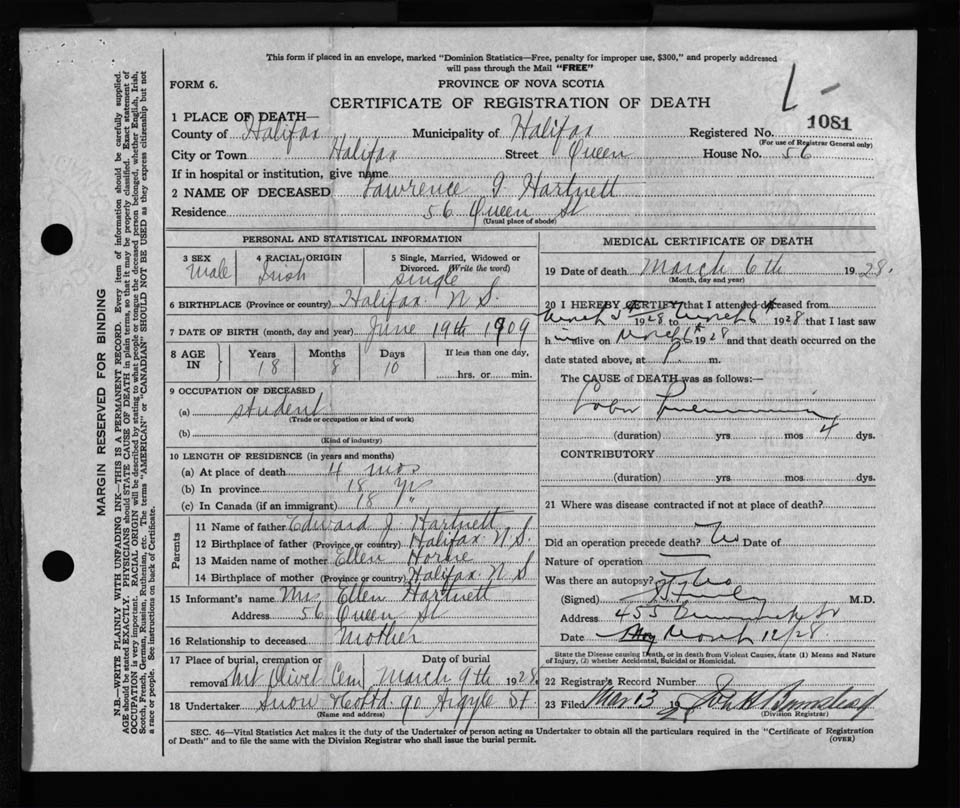 This form if placed in an envelope, marked "Dominion Statistics—Free, penalty for improper use, $300," and properly addressed
will pass through the Mail "FREE"
FORM 6.
PROVINCE OF NOVA SCOTIA
L -
CERTIFICATE OF REGISTRATION OF DEATH
1 PLACE OF DEATH—
County of Halifax Municipality of Halifax Registered No. 1081
(For use of Registrar General only)
City or Town Halifax Street Queen House No. 56
If in hospital or institution, give name
2 NAME OF DECEASED Lawrence J Hartnett
Residence 56 Queen St
(Usual place of abode)
PERSONAL AND STATISTICAL INFORMATION
3 SEX Male
4 RACIAL ORIGIN Irish
5 Single, Married, Widowed or Divorced. (Write the word) Single
6 BIRTHPLACE (Province or country) Halifax N S.
7 DATE OF BIRTH (month, day and year) June 19th 1909
8 AGE IN Years 18 Months 8 Days 10 If less than one day, hrs. or min.
9 OCCUPATION OF DECEASED
(a) Student
(Trade or occupation or kind of work)
(b)
(Kind of industry)
10 LENGTH OF RESIDENCE (in years and months)
(a) At place of death 4 mos
(b) In province 18 yr
(c) In Canada (if an immigrant) 18 "
Parents
11 Name of father Edward J Hartnett
12 Birthplace of father (Province or country) Halifax N S.
13 Maiden name of mother Ellen Horne
14 Birthplace of mother (Province or country) Halifax N S
15 Informant's name Mrs Ellen Hartnett
Address 56 Queen St
16 Relationship to deceased Mother
17 Place of burial, cremation or removal Mt Olivet Cem
Date of burial March 9th 1928
18 Undertaker Snow &Co Ltd 90 Argyle St
(Name and address)
MEDICAL CERTIFICATE OF DEATH
19 Date of death March 6th 1928.
(Month, day and year)
20 I HEREBY CERTIFY that I attended deceased from
March 1928 to March 6th 1928 that I last saw
him alive on March 6th 1928 and that death occurred on the
date stated above, at P. m.
The CAUSE of DEATH was as follows:—
Lobar Pneumonia
(duration) yrs mos 4 dys.
CONTRIBUTORY
(duration) yrs mos dys.
21 Where was disease contracted if not at place of death?
Did an operation precede death? No Date of
Nature of operation —
Was there an autopsy? No
(Signed) M.D.
Address 455
Date March 12/28
State the Disease causing Death, or in death from Violent Causes, state (1) Means and Nature
of Injury, (2) whether Accidental, Suicidal or Homicidal.
22 Registrar's Record Number
23 Filed Mar 13 19 John Bumstead
(Division Registrar)
SEC. 46—Vital Statistics Act makes it the duty of the Undertaker or person acting as Undertaker to obtain all the particulars required in the "Certificate of Registration
of Death" and to file the same with the Division Registrar who shall issue the burial permit.
(OVER)
MARGIN RESERVED FOR BINDING
N.B.—WRITE PLAINLY WITH UNFADING INK—THIS IS A PERMANENT RECORD. Every item of information should be carefully supplied.
AGE should be stated EXACTLY. PHYSICIANS should STATE CAUSE OF DEATH in plain terms, so that it may be properly classified. Exact statement of
OCCUPATION is very important. RACIAL ORIGIN will be described by stating to what people or tongue the deceased person belonged, whether English, Irish,
Scotch, French, German, Russian, Ruthenian, etc. The terms "AMERICAN" or "CANADIAN" SHOULD NOT BE USED as they express citizenship but not
a race or people. See instructions on back of Certificate.